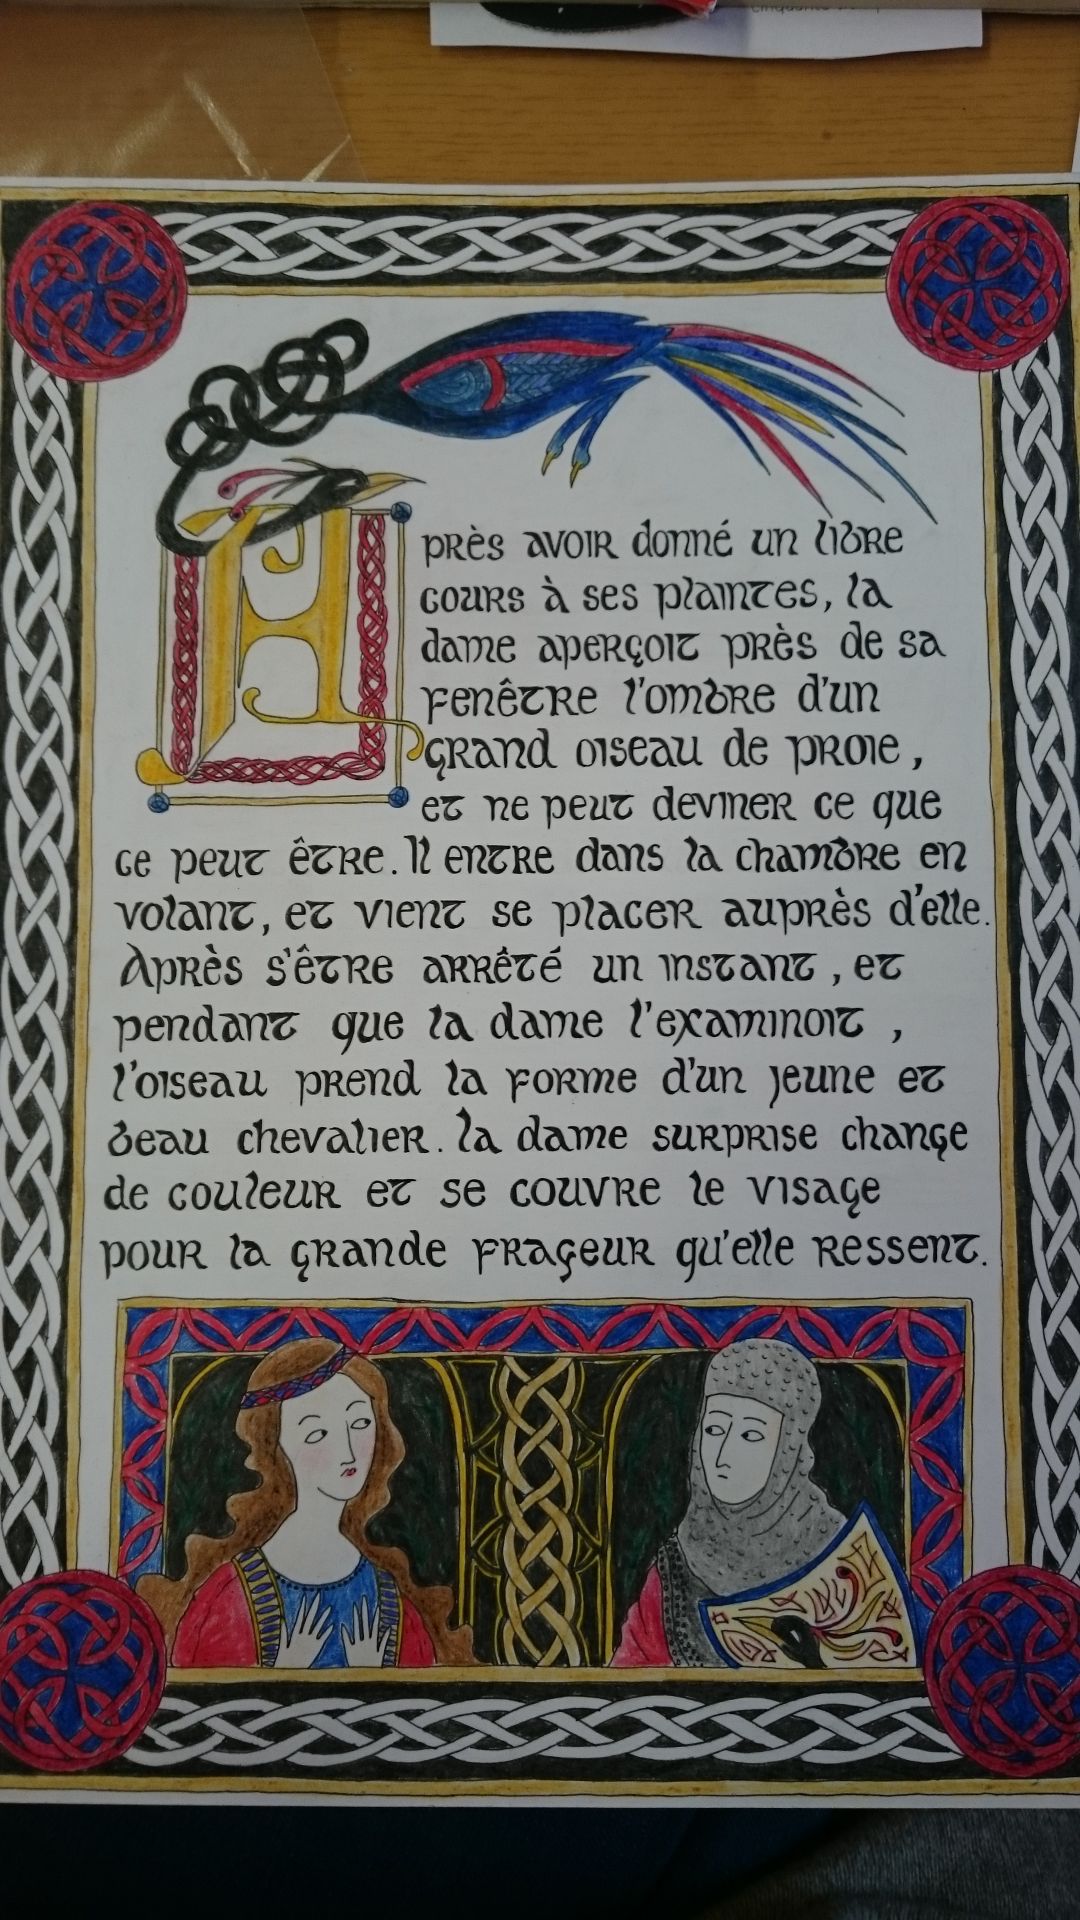 cinquante
Après avoir donné un libre
cours à ses plaintes, la
dame aperçoit près de sa
fenêtre l'ombre d'un
grand oiseau de proie,
et ne peut deviner ce que
ce peut être. Il entre dans la chambre en
volant, et vient se placer auprès d'elle.
Après s'être arrêté un instant, et
pendant que la dame l'examinoit,
l'oiseau prend la forme d'un jeune et
beau chevalier. la dame surprise change
de couleur et se couvre le visage
pour la grande frageur qu'elle ressent.